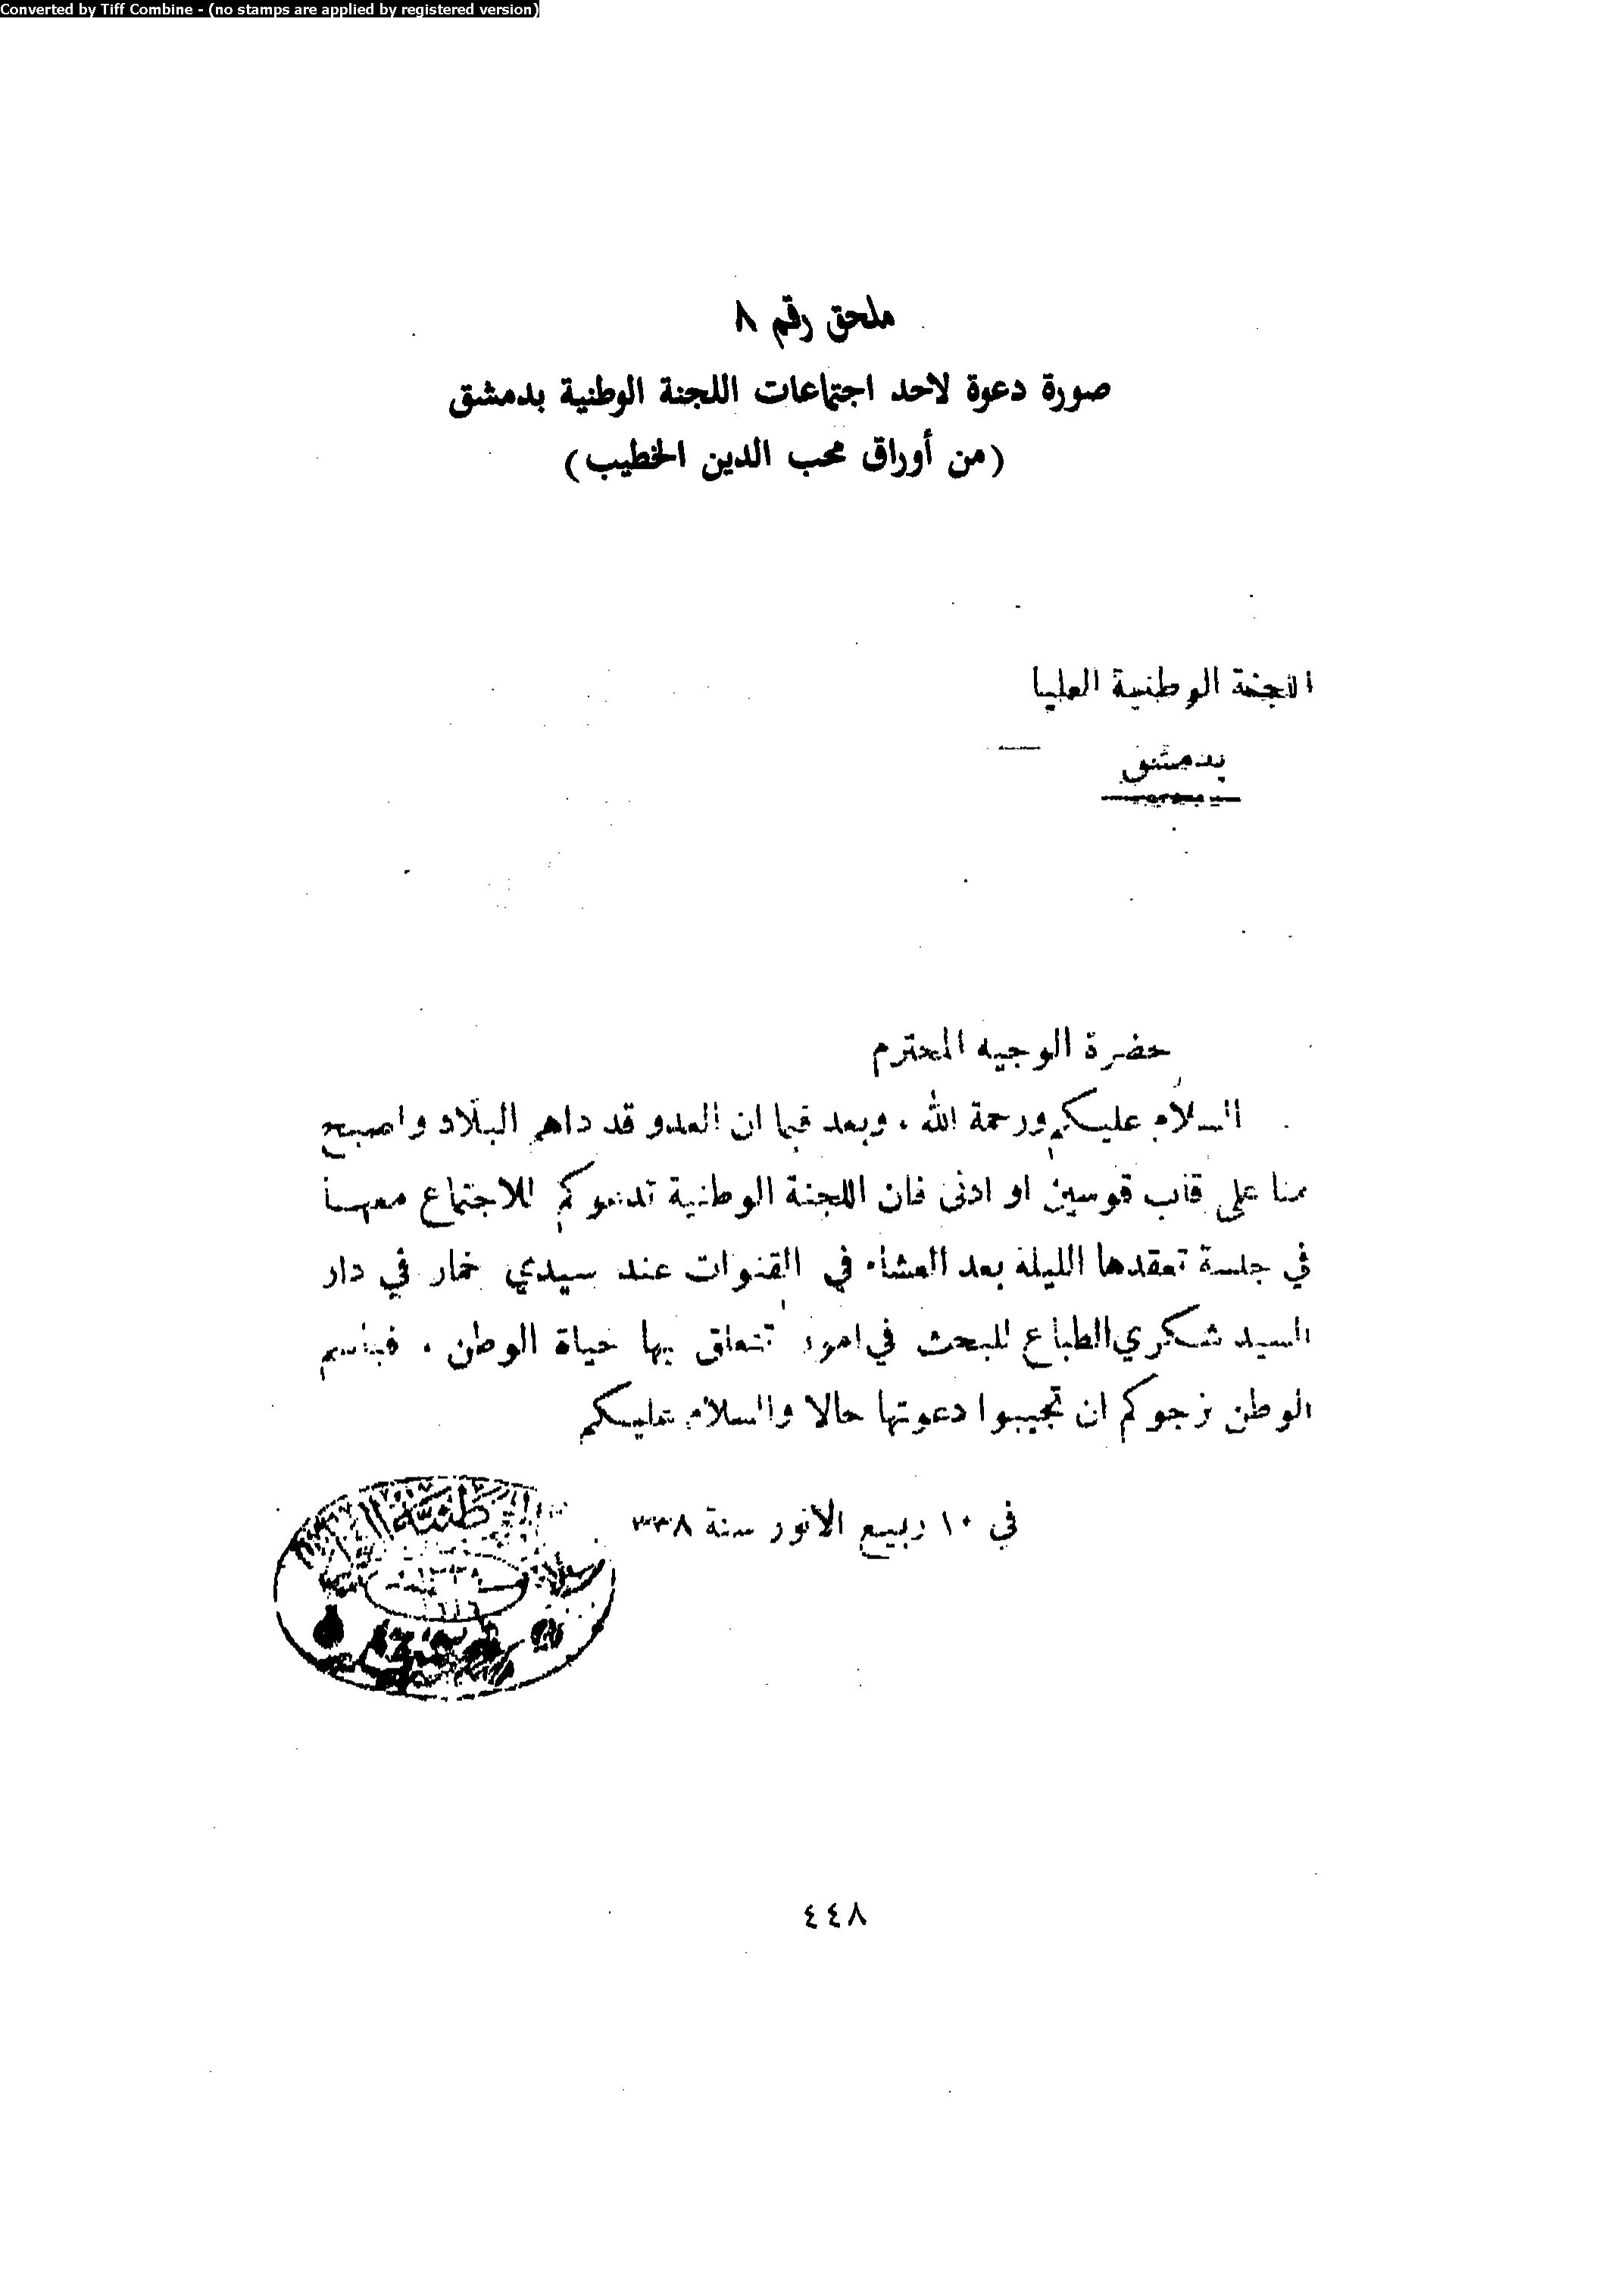 Converted by Tiff Combine - (no stamps are applied by registered version)
ملحق رقم ٨
صورة دعوة لاحد اجتماعات اللجنة الوطنية بدمشق
(من أوراق محب الدين الخطيب)
اللجنة الوطنية العليا
بدمشق
حضرة الوجيه المحترم
السلام عليكم ورحمة الله ، وبعد فبما ان العدو قد داهم البلاد واصبح
منا على قاب قوسين او ادنى فان اللجنة الوطنية تدعوكم للاجتماع معها
في جلسة تعقدها الليلة بعد العشاء في القنوات عند سيدي خمار في دار
السيد شكري الطباع للبحث في امور تتعلق بها حياة الوطن ، فباسم
الوطن نرجوكم ان تجيبوا دعوتها حالا والسلام عليكم
في ١٠ ربيع الانور سنة ٣٣٨
٤٤٨